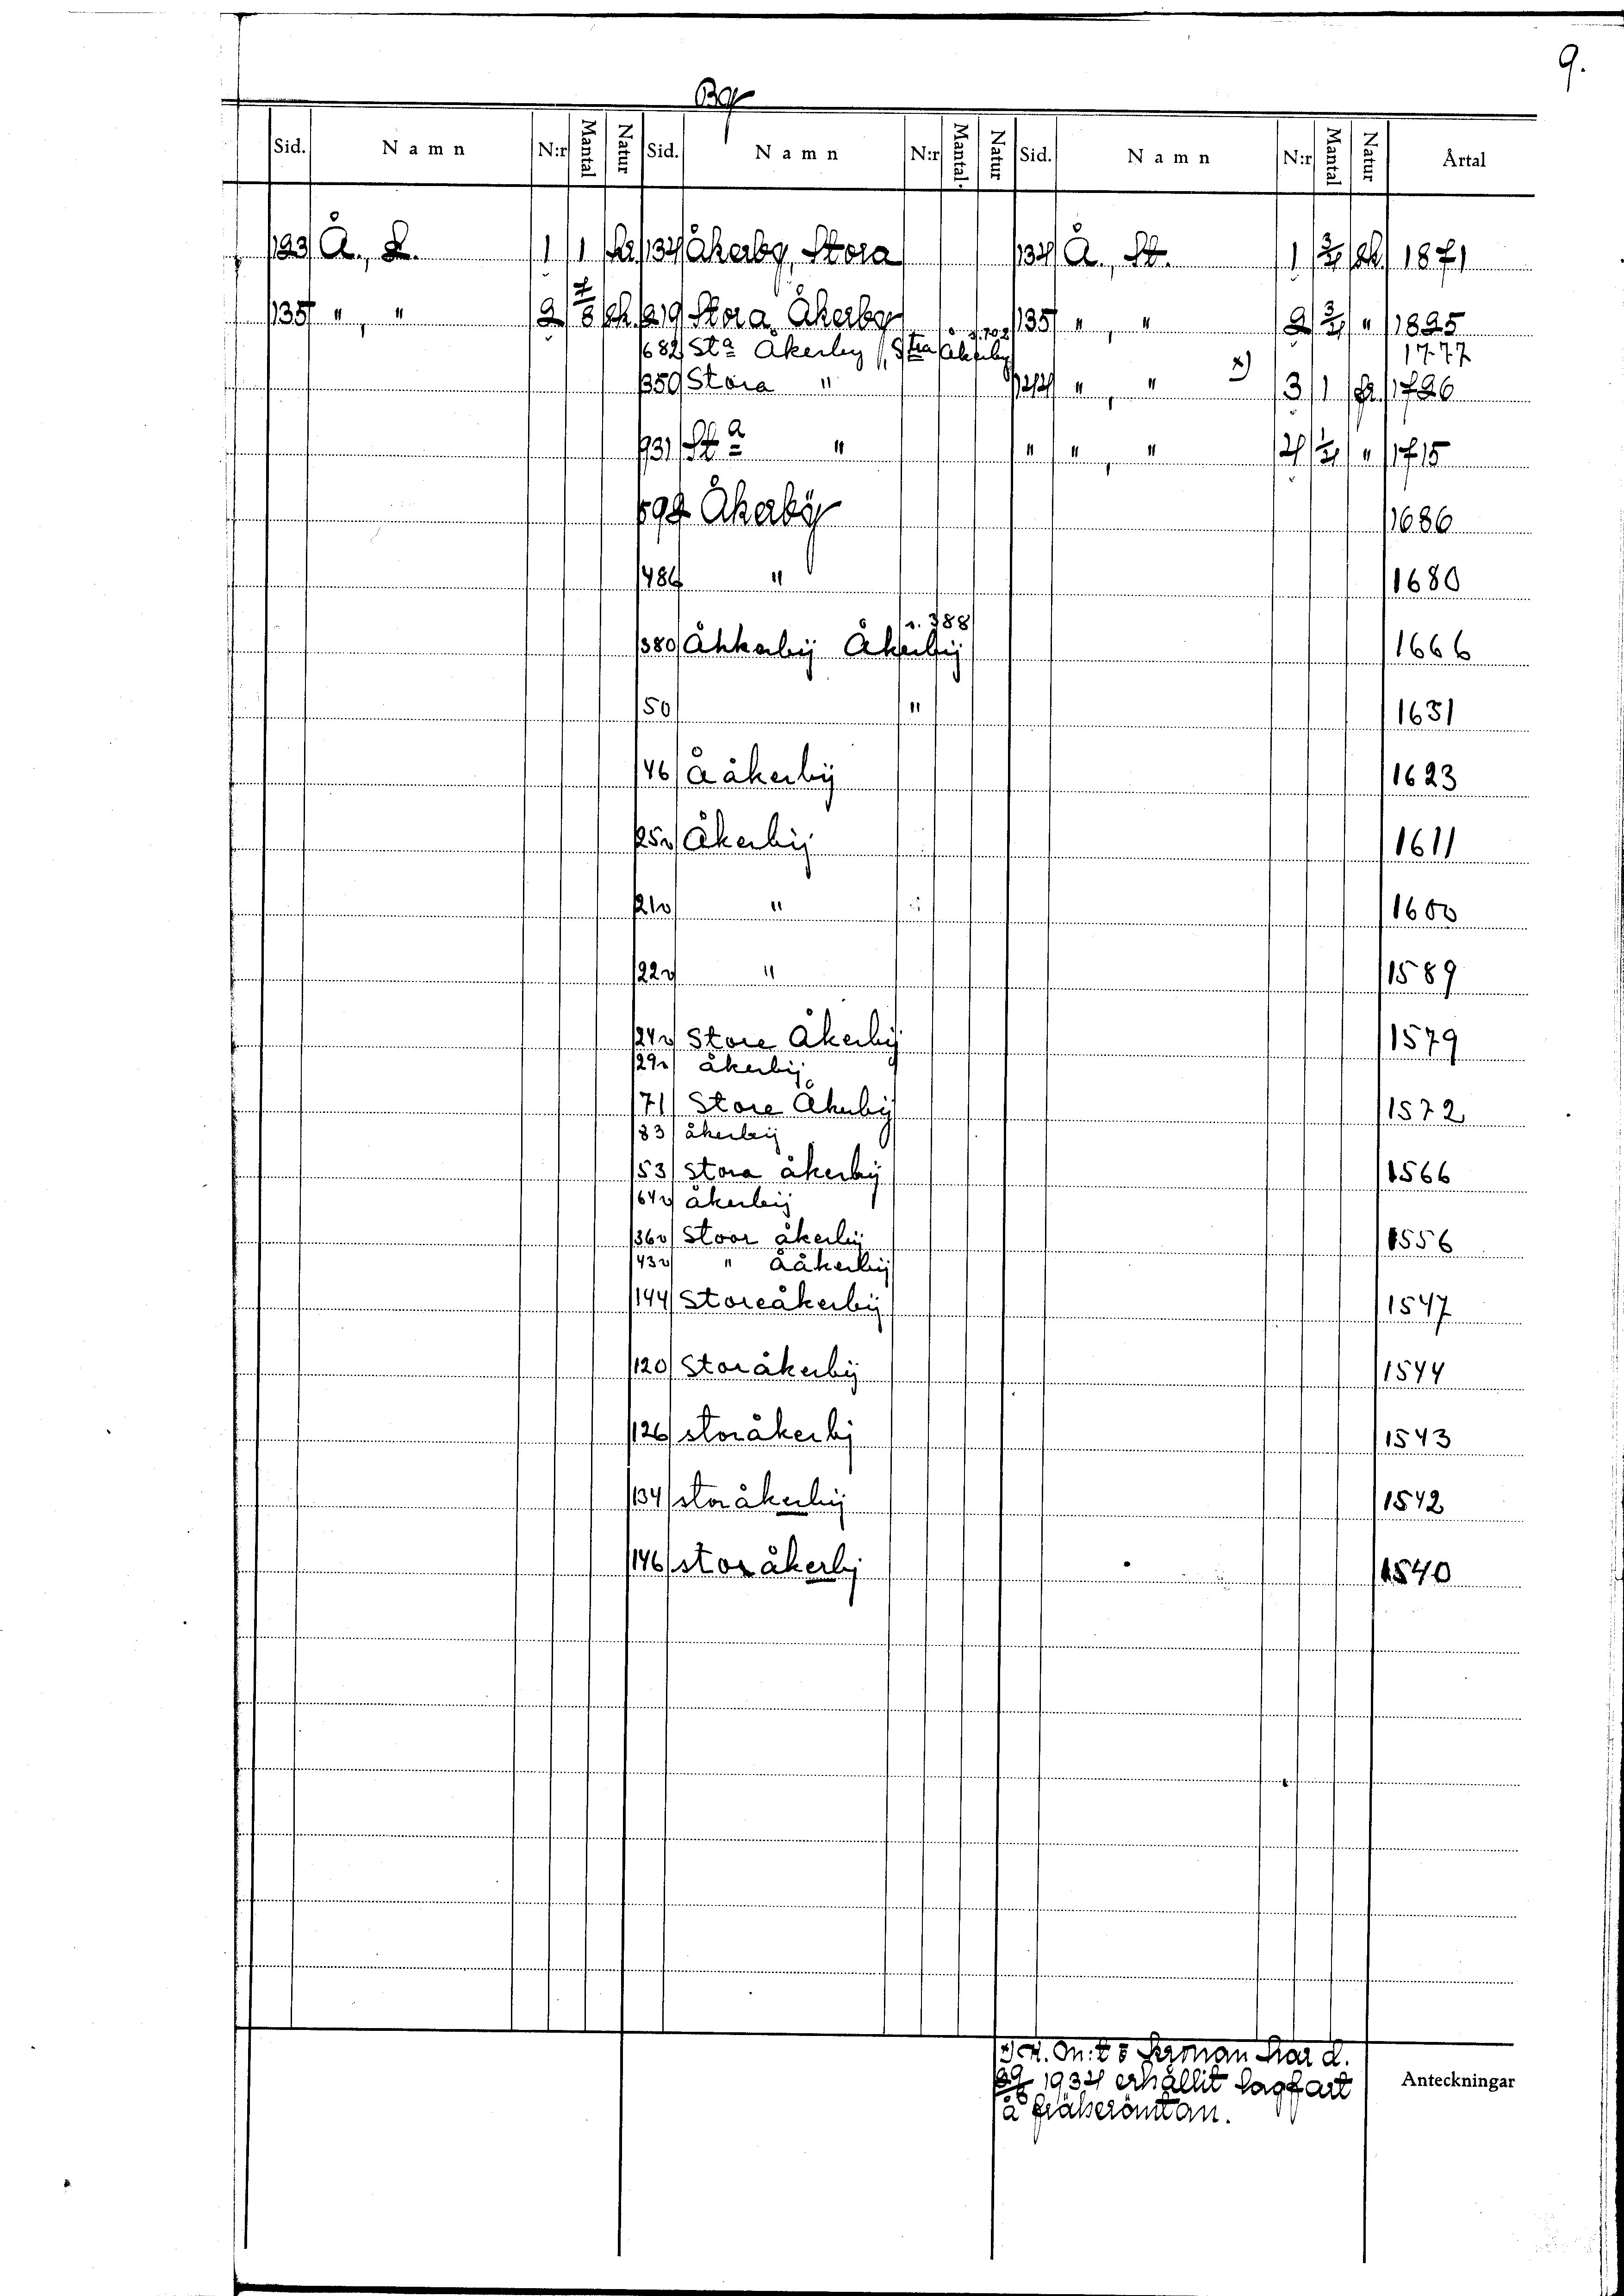 9.
By
Sid. Namn N:r Mantal Natur Sid. Namn N:r Mantal Natur Sid. Namn N:r Mantal Natur Årtal
123 Å., L. 1 1 fr. 134 Åkerby, Stora 134 Å., St. 1 3/4 sk. 1871
135 " , " 2 7/8 sk. 219 Stora Åkerby 135 " , " 2 3/4 " 1825
682 Sta Åkerby, Stra Åkerby s. 702 1777
350 Stora " 144 " , " x) 3 1 fr. 1726
931 Sta " " " , " 4 1/4 " 1715
592 Åkerbÿ 1686
486 " 1680
380 Åhkerbij Åkerbij s. 388 1666
50 " 1631
46 Ååkerbij 1623
25v Åkerbij 1611
21v " 1600
22v " 1589
24v Store Åkerbij 1579
29v åkerbij
71 Store Åkerbij 1572
83 åkerbij
53 Stora åkerbij 1566
64v åkerbij
36v Stoor åkerbij 1556
43v " Ååkerbij
144 Storeåkerbij 1547
120 Storåkerbij 1544
126 storåkerbj 1543
134 storåkerbij 1542
146 storåkerbj 1540
kronan har d.
1934 erhållit lagfart
å
Anteckningar